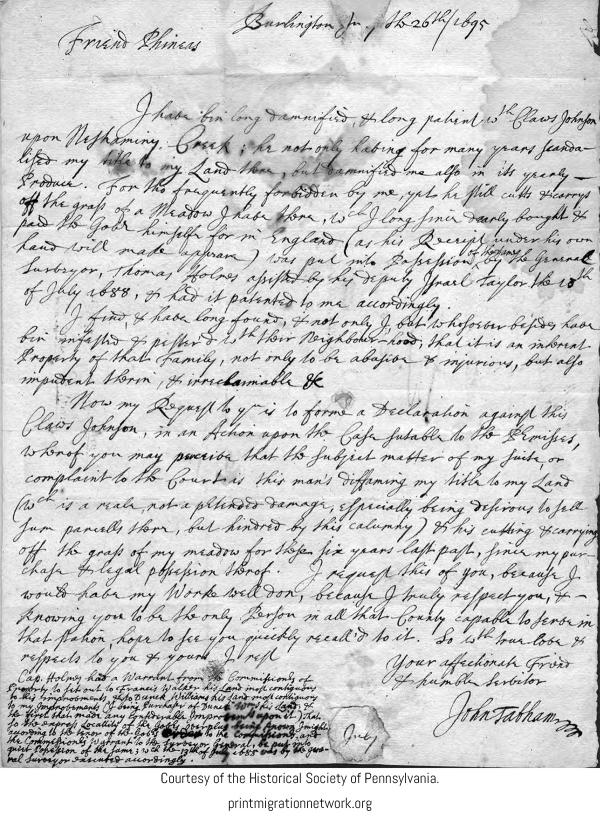 Burlington the 26th/1695
Friend Phineas
I have bin long damnified, & long patient wth Claws Johnson
upon Neshaminy Creek; he not only having for many years scanda-
lised my title to my Land there, but damnified me also in its yearly
Produce. For tho frequently forbidden by me, yet he still cutts & carrys
off the grass of a Meadow I have there, wch I long since dearly bought &
paid the Govr himself for in England (as his Receipt under his own
hand will make appeare) was put into Possession of by the General
Surveyor, Thomas Holmes assisted by his deputy Israel Taylor the 13th
of July 1688, & had it patented to me accordingly.
I find, & have long found, & not only I, but whosoever besides have
bin infested & pestered wth their Neighbour-hood, that it is an inherent
Property of that Family, not only to be abusive & injurious, but also
impudent therin, & irreclaimable &c
Now my Request to you is to forme a Declaration against this
Claws Johnson, in an Action upon the Case sutable to the Premises,
wherof you may perceive that the subject matter of my suite, or
complaint to the Court is this man's diffaming my title to my Land
(wch is a reale, not a pretended damage, especially being desirous to sell
sum parcells there, but hindred by this calumny) & his cutting & carrying
off the grass of my meadow for these six years last past, since my pur-
chase & legal possession therof. I request this of you, because I
would have my Worke well don, because I truly respect you, & -
knowing you to be the only Person in all that County capable to serve in
that station, hope to see you quickly recall'd to it. So wth true love &
respects to you & yours I rest
Your affectionate Friend
& humble Servitor
John Tatham
Cap. Holmes had a Warrant from the Commissionrs of
Property to set out to Francis Walker his Land most contiguous
to his Improvements, & to Dunck Williams his Land most contiguous
to my Improvements (I being Purchaser of Dunck Wms his Land, &
the first that made any considerable Improvemt upon it,
the Commissionrs Warrant to the Surveyor General, be put into
quiet Possession of the same; wch the 13th of July 1688 was by the gene-
ral Surveyor executed accordingly.
Courtesy of the Historical Society of Pennsylvania.
printmigrationnetwork.org